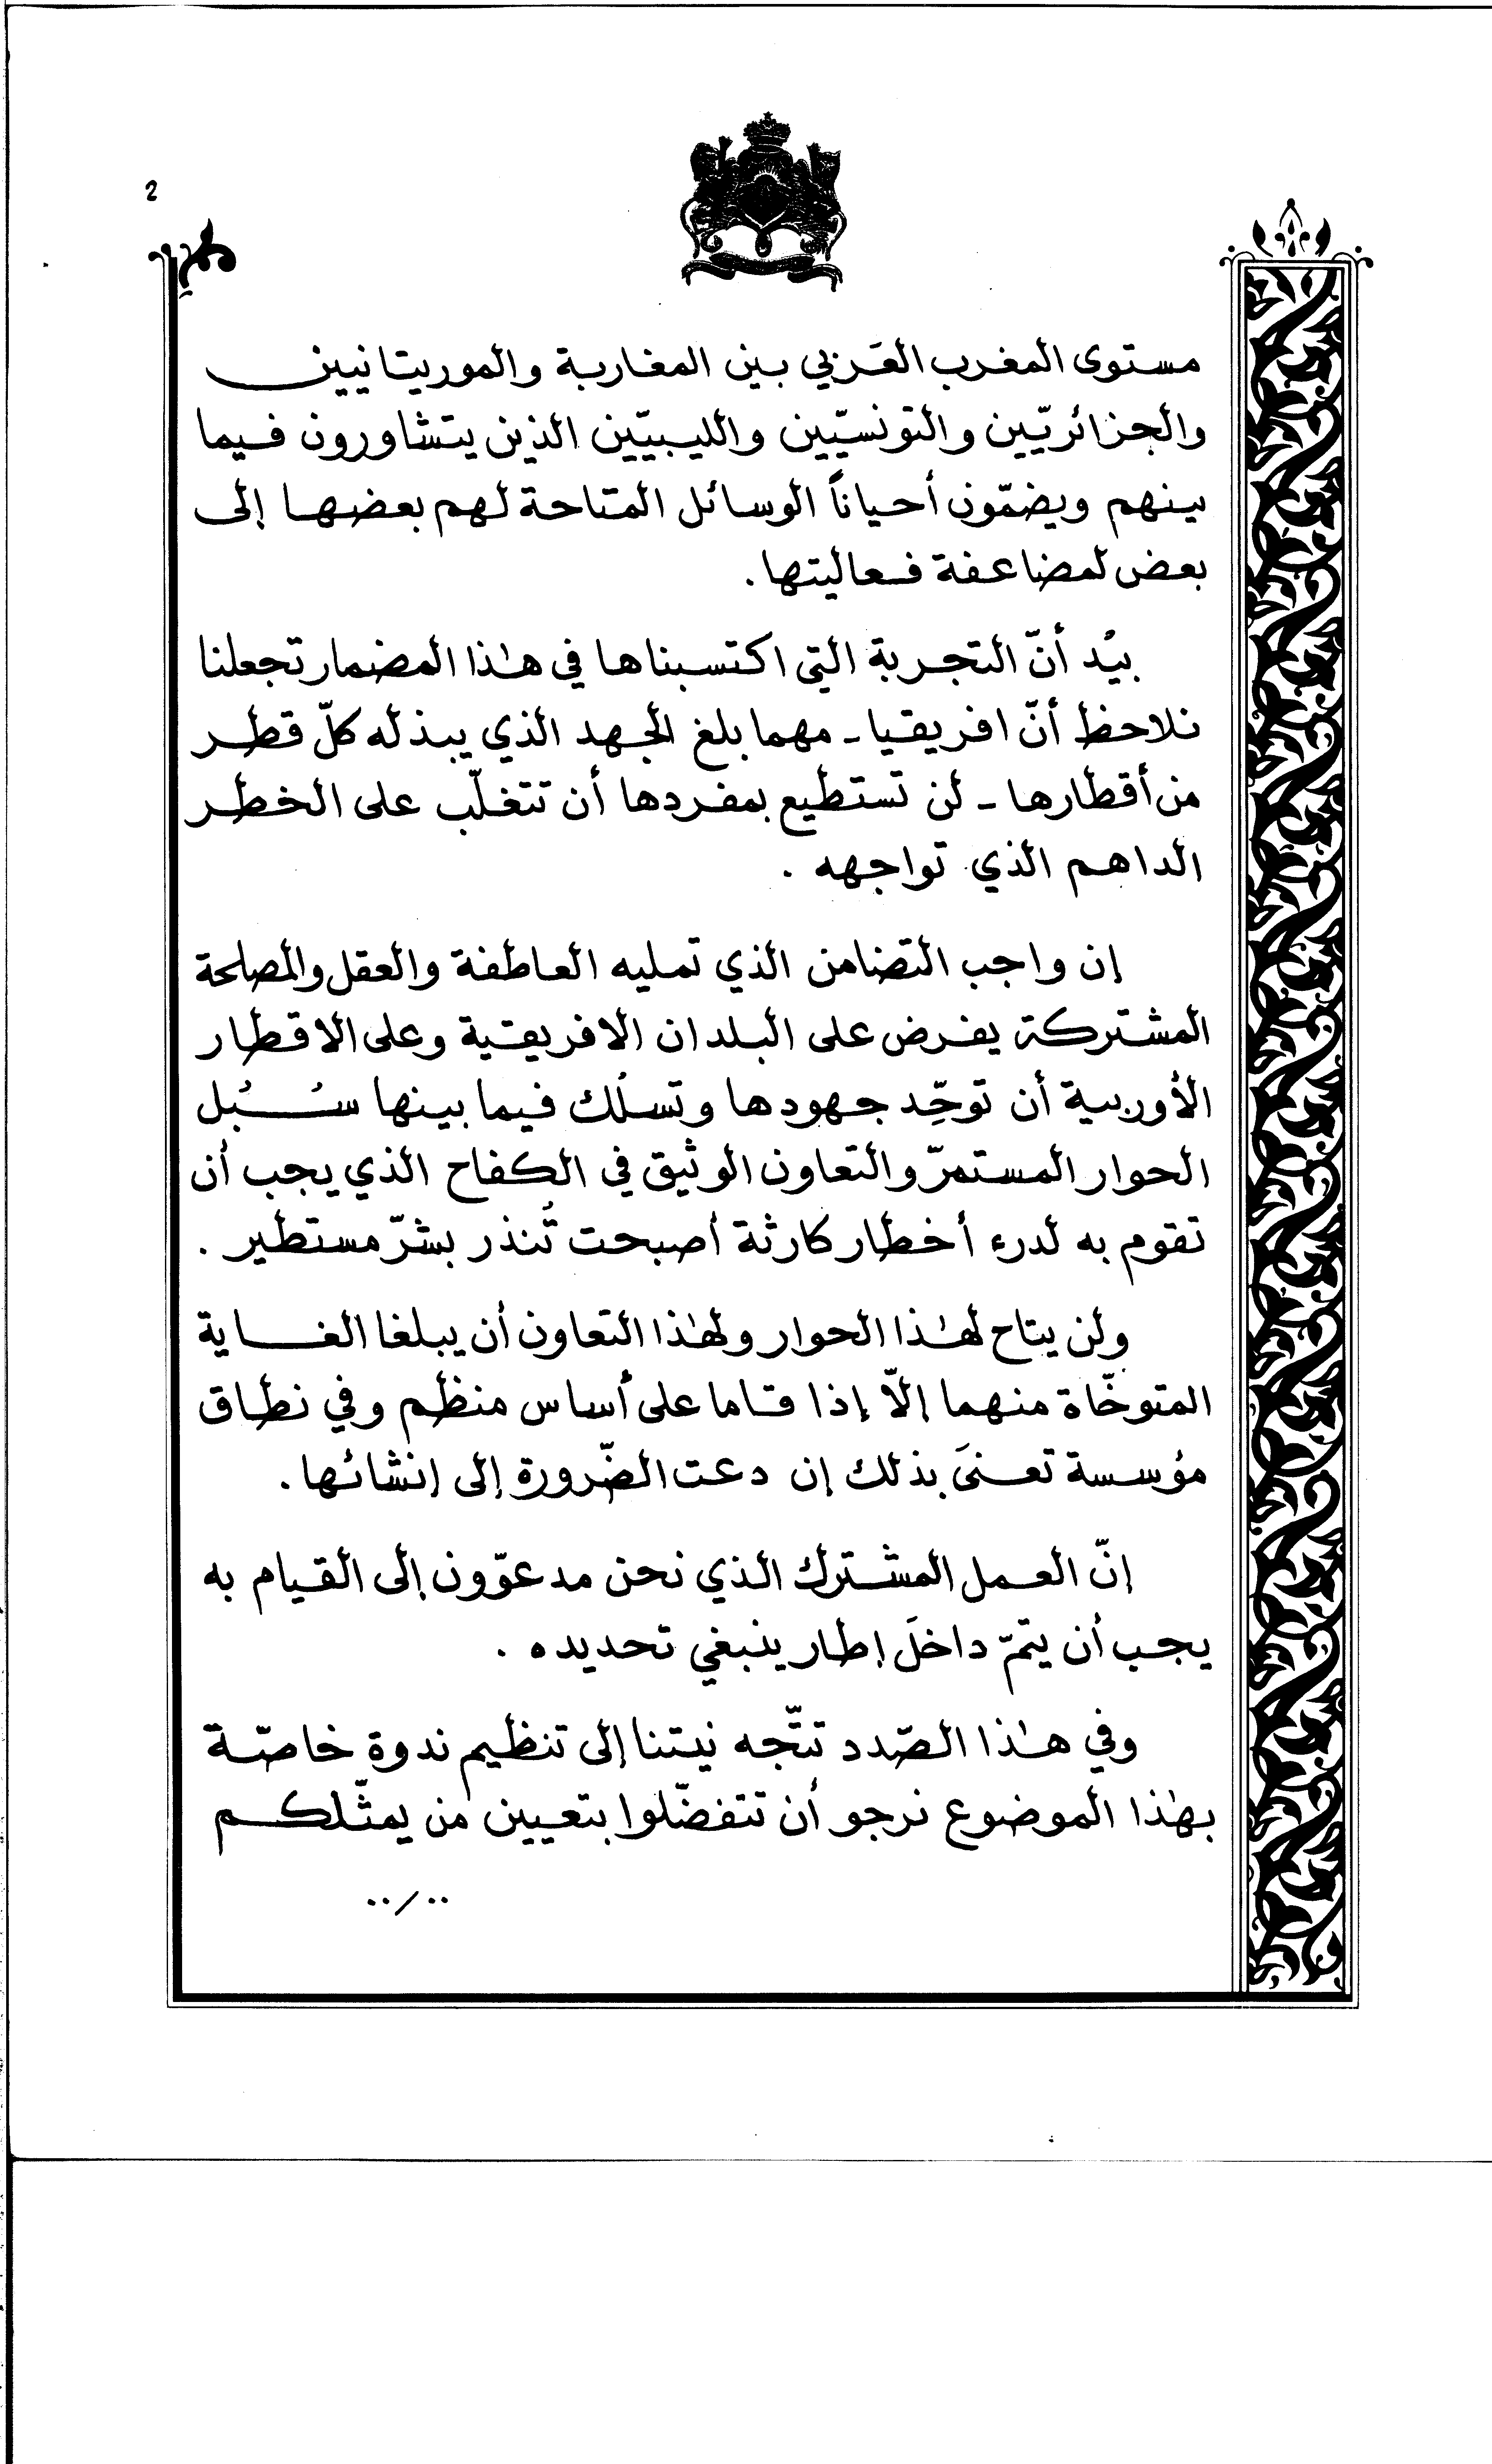 2
مستوى المغرب العَربي بين المغاربة والموريتانيين
والجزائريّين والتونسيّين والليبيّين الذين يتشاورون فيما
بينهم ويضمّون أحياناً الوسائل المتاحة لهم بعضها إلى
بعض لمضاعفة فعاليتها.
بيْد أنّ التجربة التي اكتسبناها في هٰذا المضمار تجعلنا
نلاحظ أنّ افريقيا ـ مهما بلغ الجهد الذي يبذله كلّ قطر
من أقطارها ـ لن تستطيع بمفردها أن تتغلّب على الخطر
الداهم الذي تواجهه .
إن واجب التضامن الذي تمليه العاطفة والعقل والمصلحة
المشتركة يفرض على البلدان الافريقية وعلى الاقطار
الأوربية أن توحِّد جهودها وتسلُك فيما بينها سُبُل
الحوار المستمرّ والتعاون الوثيق في الكفاح الذي يجب أن
تقوم به لدرء أخطار كارثة أصبحت تُنذر بشرّ مستطير .
ولن يتاح لهٰذا الحوار ولهٰذا التعاون أن يبلغا الغاية
المتوخّاة منهما إلّا إذا قاما على أساس منظم وفي نطاق
مؤسسة تعنىَ بذلك إن دعت الضّرورة إلى إنشائها .
إنّ العمل المشترك الذي نحن مدعوّون إلى القيام به
يجب أن يتمّ داخلَ إطار ينبغي تحديده .
وفي هٰذا الصّدد تتّجه نيتنا إلى تنظيم ندوة خاصّة
بهٰذا الموضوع نرجو أن تتفضّلوا بتعيين من يمثّلكم
../..